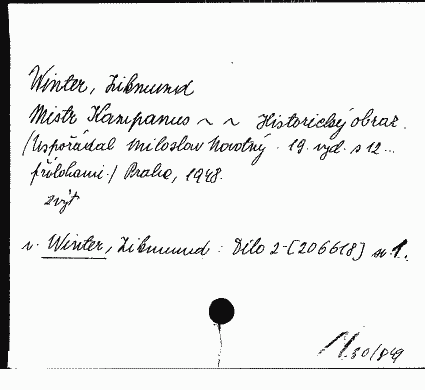 Winter, Zikmund
Mistr Kampanus ~ ~ Historický obraz.
/Uspořádal Miloslav Novotný. 19. vyd. s 12...
přílohami./ Praha, 1948.
zvýt
v. Winter, Zikmund: Dílo 2-[206618] sv. 1.
50/849